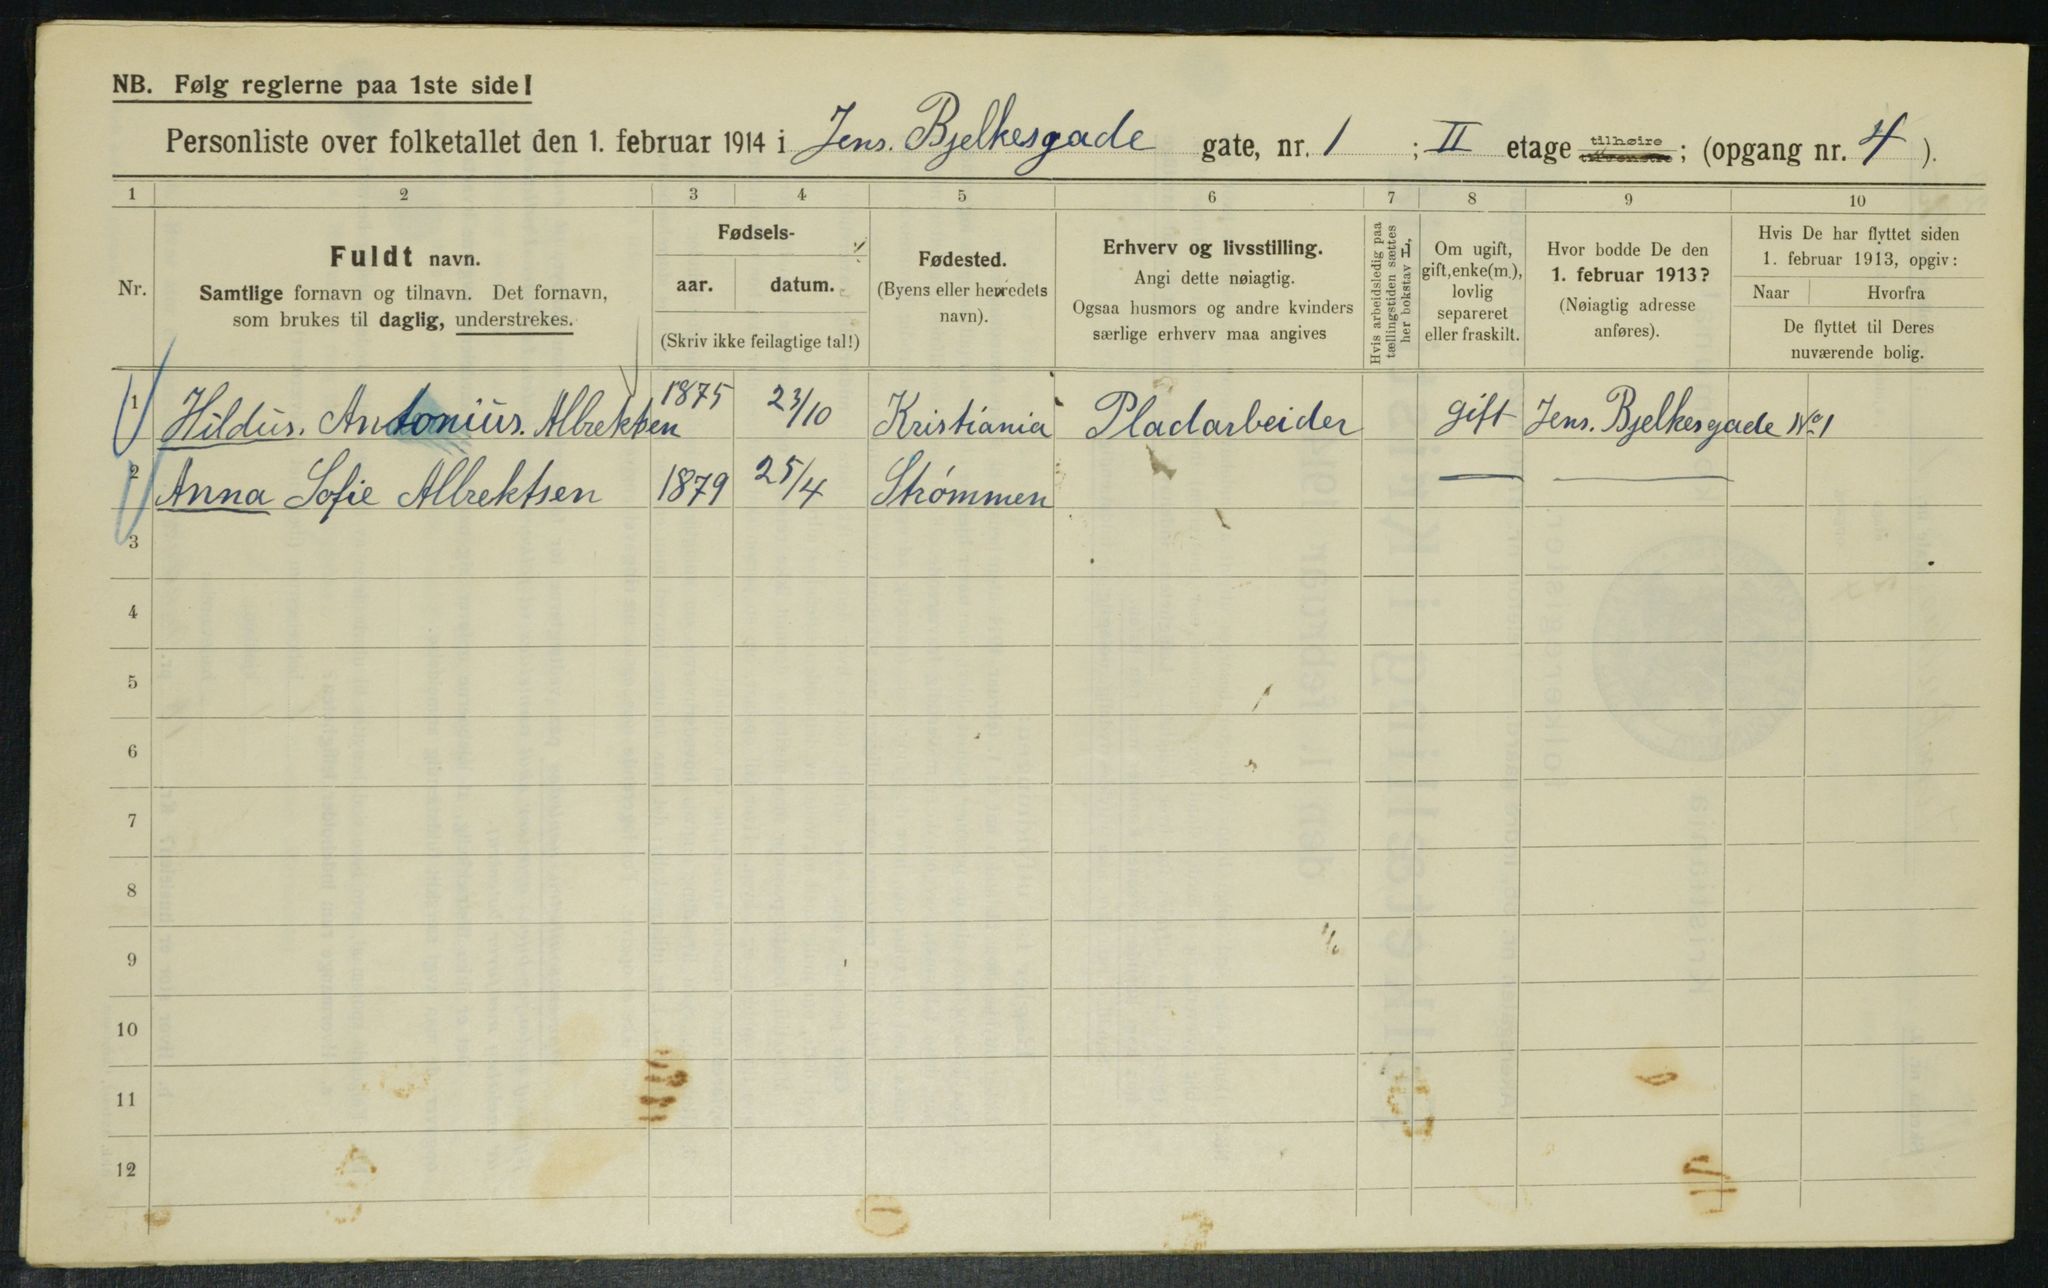 NB. Følg reglerne paa 1ste side!
Personliste over folketallet den 1. februar 1914 i Jens. Bjelkesgade gate, nr. 1 ; II etage tilhøire tilvenstre; (opgang nr. 4 ).
1 2 3 4 5 6 7 8 9 10
Nr.
Fuldt navn.
Samtlige fornavn og tilnavn. Det fornavn,
som brukes til daglig, understrekes.
Fødsels-
aar. datum.
(Skriv ikke feilagtige tal!)
Fødested.
(Byens eller herredets
navn).
Erhverv og livsstilling.
Angi dette nøiagtig.
Ogsaa husmors og andre kvinders
særlige erhverv maa angives
Hvis arbeidsledig paa
tællingstiden sættes
her bokstav L.
Om ugift,
gift, enke(m.),
lovlig
separeret
eller fraskilt.
Hvor bodde De den
1. februar 1913?
(Nøiagtig adresse
anføres).
Hvis De har flyttet siden
1. februar 1913, opgiv:
Naar Hvorfra
De flyttet til Deres
nuværende bolig.
1 Hildus. Antonius. Albrektsen 1875 23/10 Kristiania Pladarbeider gift Jens. Bjelkesgade No 1
2 Anna Sofie Albrektsen 1879 25/4 Strømmen — —
3
4
5
6
7
8
9
10
11
12